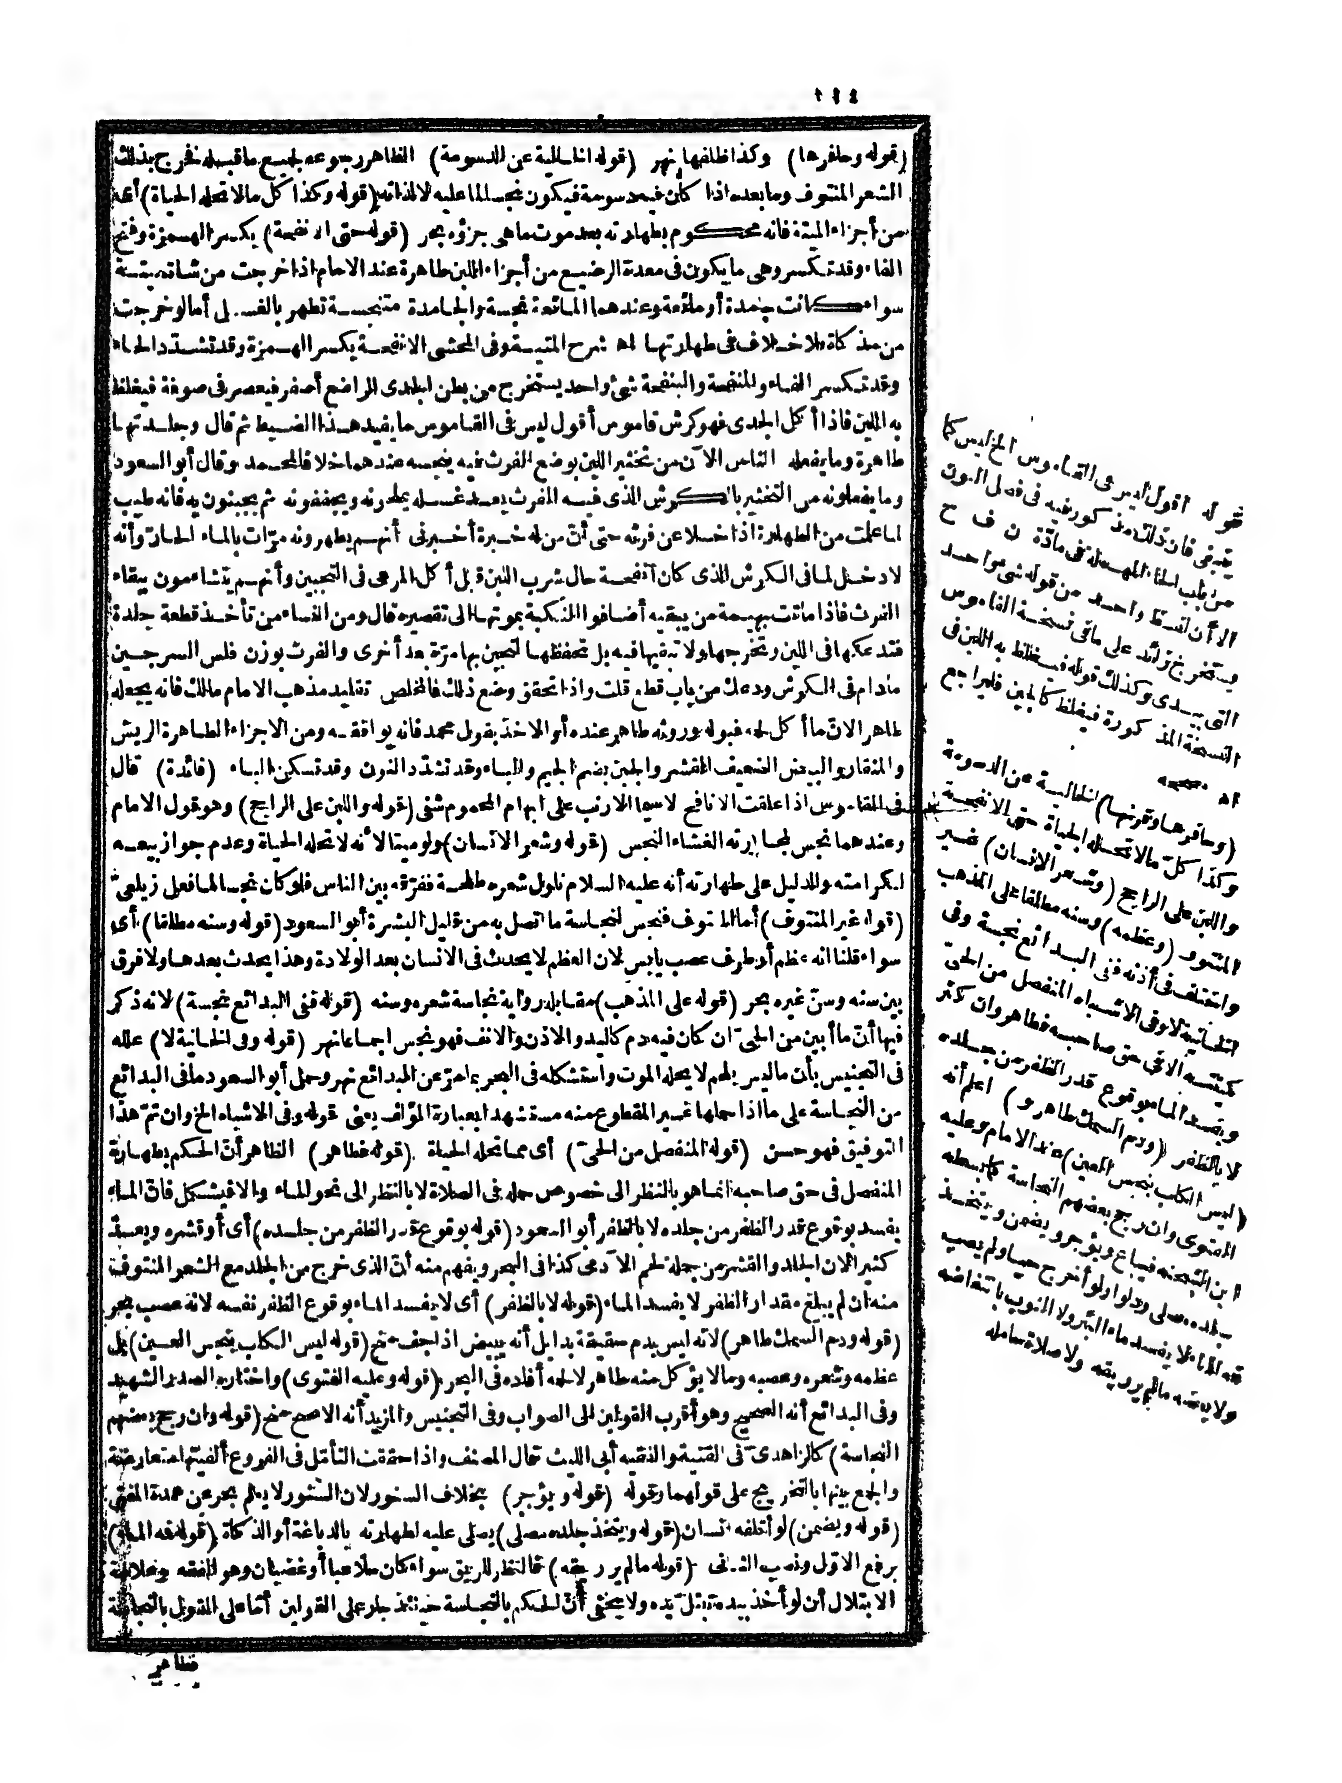 ١١٤
(قوله وحافرها) وكذا ظلفها نهر (قوله الخالية عن الدسومة) الظاهر رجوعه لجميع ما قبله فخرج بذلك
الشعر المنتوف وما بعده اذا كان فيه دسومة فيكون نجسا لما عليه لا لذاته (قوله وكذا كل مالا تحله الحياة) أى
من أجزاء الميتة فانه محكوم بطهارته بعد موت ماهى جزؤه بحر (قوله حتى الانفحة) بكسر الهمزة وفتح
الفاء وقد تكسر وهى ما يكون فى معدة الرضيع من أجزاء اللبن طاهرة عند الامام اذا خرجت من شاة ميتة
سواء كانت جامدة أو مائعة وعندهما المائعة نجسة والجامدة متنجسة تطهر بالغسل أما لو خرجت
من مذكاة فلا خلاف فى طهارتها اه شرح المنية وفى المحشى الانفحة بكسر الهمزة وقد تشدد الحاء
وقد تكسر الفاء والمنفحة والبنفحة شئ واحد يستخرج من بطن الجدى الراضع أصفر فيعصر فى صوفة فيغلظ
به اللبن فاذا أكل الجدى فهو كرش قاموس أقول ليس فى القاموس ما يفيد هذا الضبط ثم قال وجلدتها
طاهرة وما يفعله الناس الآن من تخثير اللبن بوضع الفرث فيه ينجسه عندهما خلافا لمحمد وقال أبو السعود
وما يفعلونه من التخثير بالكرش الذى فيه الفرث بعد غسله يملحونه ويجففونه ثم يجبنون به فانه طيب
لما علمت من الطهارة اذا خلا عن فرثه حتى أن من له خبرة أخبرنى أنهم يطهرونه مرّات بالماء الحارّ وأنه
لا دخل لما فى الكرش الذى كان أنفحة حال شرب اللبن قبل أكل المرعى فى التجبين وأنهم يتشاءمون ببقاء
الفرث فاذا ماتت بهيمة من يبقيه أضافوا النكبة بموتها الى تقصيره قال ومن النساء من تأخذ قطعة جلدة
فتدعكها فى اللبن وتخرجها ولا تبقيها فيه بل تحفظها لتجبن بها مرّة بعد أخرى والفرث بوزن فلس السرجين
مادام فى الكرش ودعك من باب قطع قلت واذا تحقق وضع ذلك فالمخلص تقليد مذهب الامام مالك فانه يجعله
طاهر الانّ ما أكل لحمه فبوله وروثه طاهر عنده أو الاخذ بقول محمد فانه يوافقه ومن الاجزاء الطاهرة الريش
والمنقار والبيض الضعيف القشر والجبن بضم الجيم والباء وقد تشدّد النون وقد تسكن الباء (فائدة) قال
فى القاموس اذا علقت الانافح لاسيما الارنب على ابهام المحموم شفى (قوله واللبن على الراجح) وهو قول الامام
وعندهما نجس لمجاورته الغشاء النجس (قوله وشعر الانسان) ولو ميتا لأنه لا تحله الحياة وعدم جواز بيعه
لكرامته والدليل على طهارته أنه عليه السلام ناول شعره طلحة ففرّقه بين الناس فلو كان نجسا لما فعل زيلعى
(قوله غير المنتوف) أما المنتوف فنجس لنجاسة ما اتصل به من قليل البشرة أبو السعود (قوله وسنه مطلقا) أى
سواء قلنا انه عظم أو طرف عصب يابس لان العظم لا يحدث فى الانسان بعد الولادة وهذا يحدث بعدها ولا فرق
بين سنه وسنّ غيره بحر (قوله على المذهب) مقابله رواية نجاسة شعره وسنه (قوله ففى البدائع نجسة) لانه ذكر
فيها أنّ ما أبين من الحىّ ان كان فيه دم كاليد والاذن والانف فهو نجس اجماعا نهر (قوله وفى الخانية لا) علله
فى التجنيس بأن ما ليس بلحم لا يحله الموت واستشكله فى البحر بما مرّ عن البدائع نهر وحمل أبو السعود ما فى البدائع
من النجاسة على ما اذا حملها غير المقطوع منه مستشهدا بعبارة المؤلف يعنى قوله وفى الاشباه الخ وان تمّ هذا
التوفيق فهو حسن (قوله المنفصل من الحىّ) أى مما تحله الحياة (قوله فطاهر) الظاهر أنّ الحكم بطهارة
المنفصل فى حق صاحبه انما هو بالنظر الى خصوص حمله فى الصلاة لا بالنظر الى نحو الماء والا فيشكل فانّ الماء
يفسد بوقوع قدر الظفر من جلده لا بالظفر أبو السعود (قوله بوقوع قدر الظفر من جلده) أى أو قشره ويعدّ
كثيرا لان الجلد والقشر من جملة لحم الآدمى كذا فى البحر ويفهم منه أنّ الذى خرج من الجلد مع الشعر المنتوف
منه ان لم يبلغ مقدار الظفر لا يفسد الماء (قوله لا بالظفر) أى لا يفسد الماء بوقوع الظفر نفسه لانه عصب بحر
(قوله ودم السمك طاهر) لانه ليس بدم حقيقة بدليل أنه يبيض اذا جف منح (قوله ليس الكلب بنجس العين) بل
عظمه وشعره وعصبه وما لا يؤكل منه طاهر لا لحمه أفاده فى البحر (قوله وعليه الفتوى) واختاره الصدر الشهيد
وفى البدائع أنه الصحيح وهو أقرب القولين الى الصواب وفى التجنيس والمزيد أنه الاصح منح (قوله وان رجح بعضهم
النجاسة) كالزاهدىّ فى القنية والفقيه أبى الليث قال المصنف واذا حققت التأمّل فى الفروع ألفيتها متعارضة
والجمع بينها بالتخريج على قولهما وقوله (قوله ويؤجر) بخلاف السنور لان السنور لا يعلم بحر عن عمدة المفتى
(قوله ويضمن) لو أتلفه انسان (قوله ويتخذ جلده مصلى) يصلى عليه لطهارته بالدباغة أو الذكاة (قوله فه الماء)
برفع الاوّل ونصب الثانى (قوله مالم ير ريقه) فالنظر للريق سواء كان ملاعبا أو غضبان وهو الفقه وعلامة
الابتلال أن لو أخذ بيده تبتل يده ولا يخفى أنّ الحكم بالنجاسة حينئذ جار على القولين أمّا على القول بالنجاسة
فظاهر
قوله أقول ليس فى القاموس الخ ليس كما
ينبغى فان ذلك مذكور فيه فى فصل النون
من باب الحاء المهملة فى مادّة ن ف ح
الا أن لفظ واحد من قوله شئ واحد
ويستخرج زائد على ما فى نسخة القاموس
التى بيدى وكذلك قوله فيغلظ به اللبن فى
النسخة المذكورة فيغلظ كالجبن فليراجع
اه مصححه
(وحافرها وقرنها) الخالية عن الدسومة
وكذا كلّ مالا تحله الحياة حتى الانفحة
واللبن على الراجح (وشعر الانسان) غير
المنتوف (وعظمه) وسنه مطلقا على المذهب
واختلف فى أذنه ففى البدائع نجسة وفى
الخانية لا وفى الاشباه المنفصل من الحىّ
كميتته الا فى حق صاحبه فطاهر وان كثر
ويفسد الماء بوقوع قدر الظفر من جلده
لا بالظفر (ودم السمك طاهر و) اعلم أنه
(ليس الكلب بنجس العين) عند الامام وعليه
الفتوى وان رجح بعضهم النجاسة كما بسطه
ابن الشحنة فيباع ويؤجر ويضمن ويتخذ
جلده مصلى ودلوا ولو أخرج حيا ولم يصب
فه الماء لا يفسد ماء البئر ولا الثوب بانتفاضه
ولا بعضه مالم ير ريقه ولا صلاة حامله